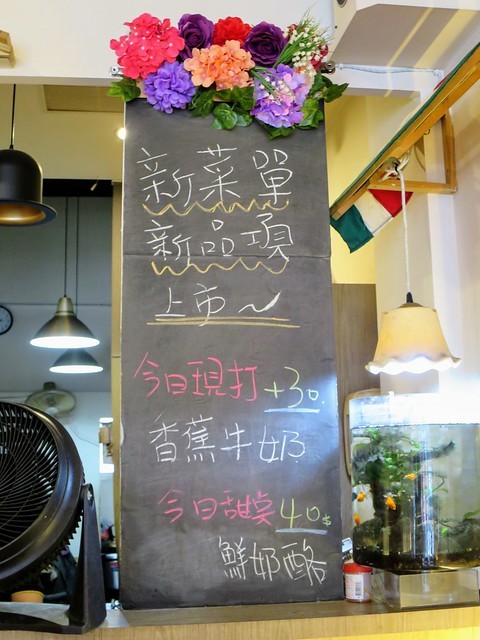 新菜單
新品項
上市～
今日現打 +30.
香蕉牛奶
今日甜桌 40$
鮮奶酪